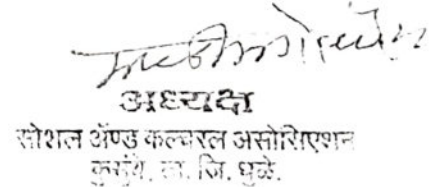 अध्यक्ष
सोशल ॲण्ड कल्चरल असोसिएशन
कुसुंबे, ता. जि. धुळे.